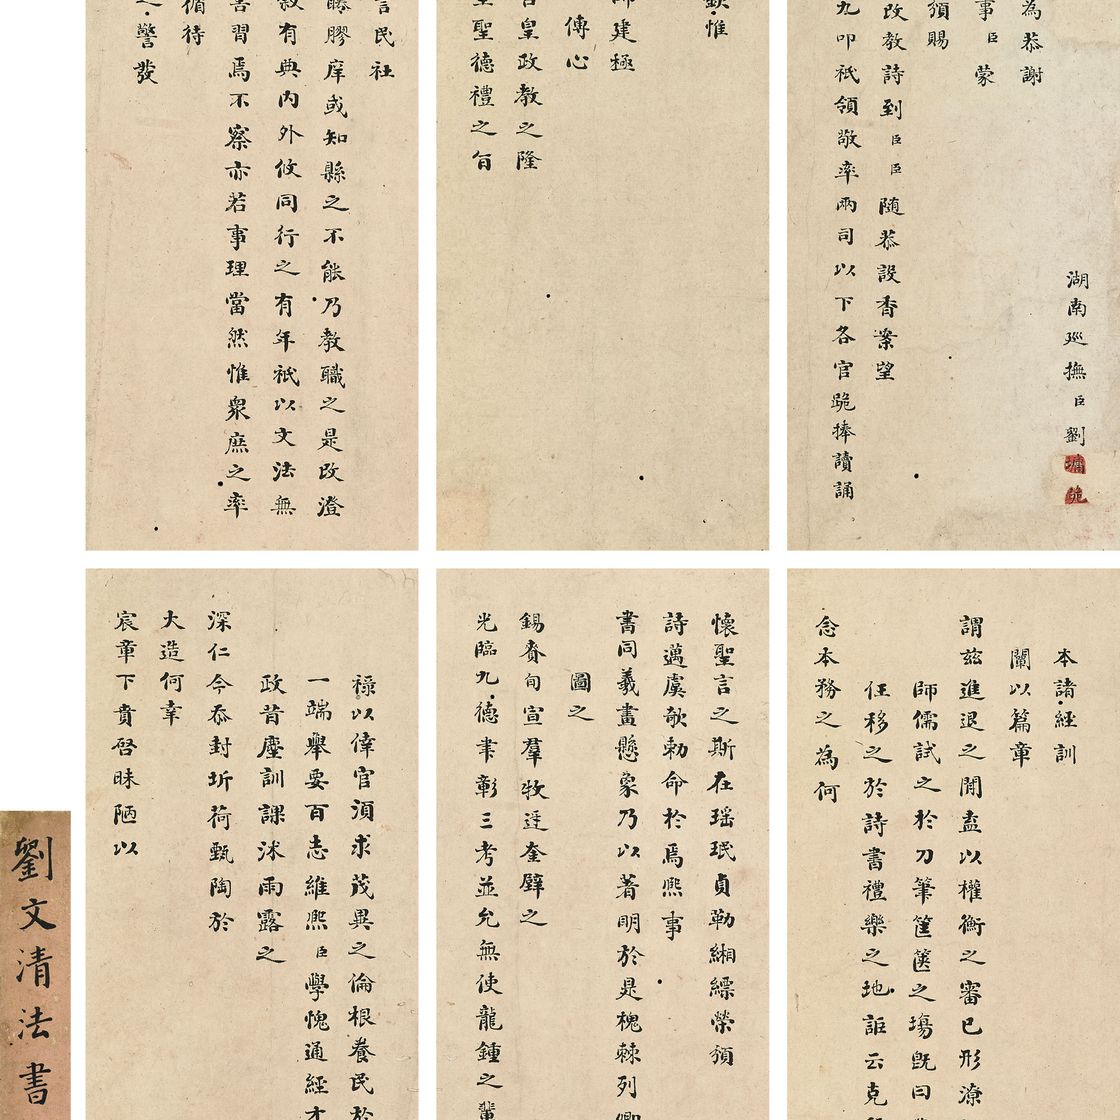 湖南巡撫臣劉墉跪
為恭謝
事臣蒙
頒賜
改教詩到臣臣随恭設香案望
九叩祇領敬率兩司以下各官跪捧讀誦
欽惟
師建極
傳心
皇政教之隆
聖聖德禮之旨
言民社
滕膠庠或知縣之不能乃教職之是改澄
敘有典内外攸同行之有年祇以文法無
習焉不察亦若事理當然惟衆庶之率
循待
之警發
本諸經訓
闡以篇章
謂茲進退之間盍以權衡之審已形潦
師儒試之於刀筆筐篋之塲既曰
任移之於詩書禮樂之地詎云克
念本務之為何
懷聖言之斯在瑶珉貞勒緗縹榮頒
詩邁虞歌勅命於焉熈事
書同羲畫懸象乃以著明於是槐棘列卿
圖之
錫賚旬宣羣牧迓奎璧之
光臨九德聿彰三考並允無使龍鍾之輩
祿以倖官湏求茂異之倫根養民於
一端舉要百志維熈臣學愧通經才
政昔塵訓課沐雨露之
深仁今忝封圻荷甄陶於
大造何幸
宸章下賁啓昧陋以
劉文清法書